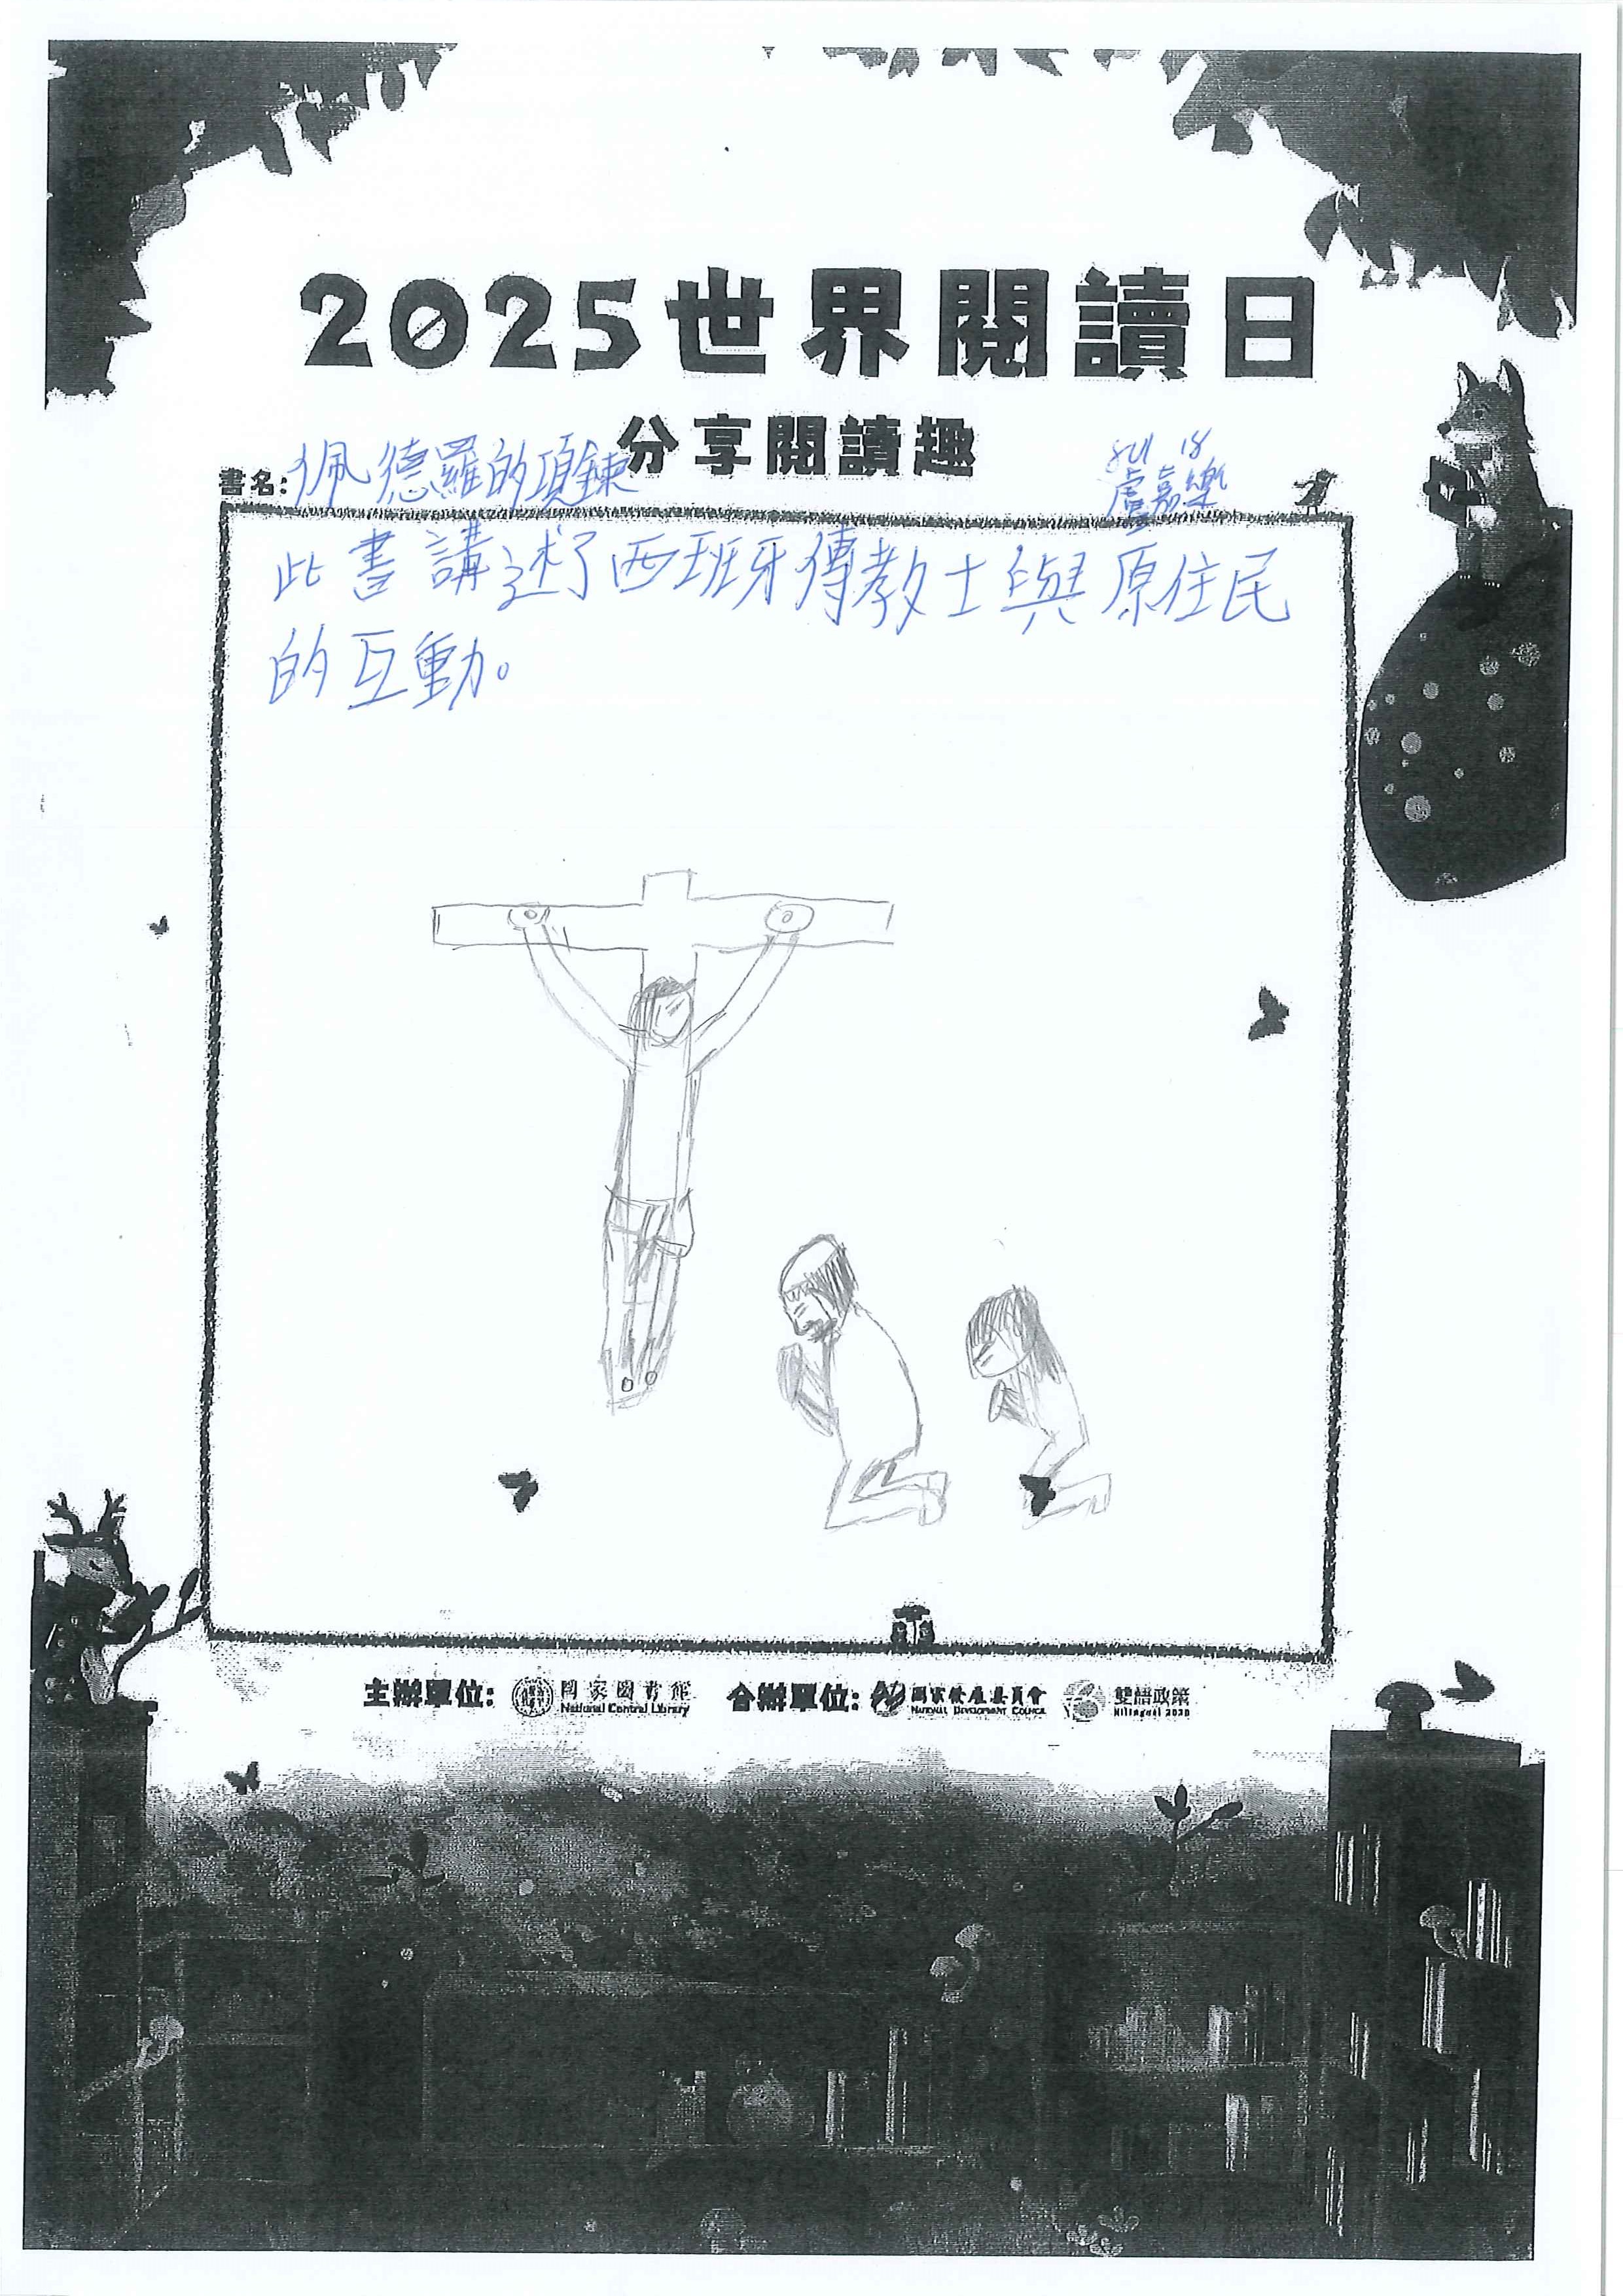 2025世界閱讀日
分享閱讀趣
821 18
書名:佩德羅的項鍊
盧嘉樂
此書講述了西班牙傳教士與原住民
的互動。
主辦單位: 國家圖書館 National Central Library 合辦單位: 國家發展委員會 NATIONAL DEVELOPMENT COUNCIL 雙語政策 Bilingual 2030